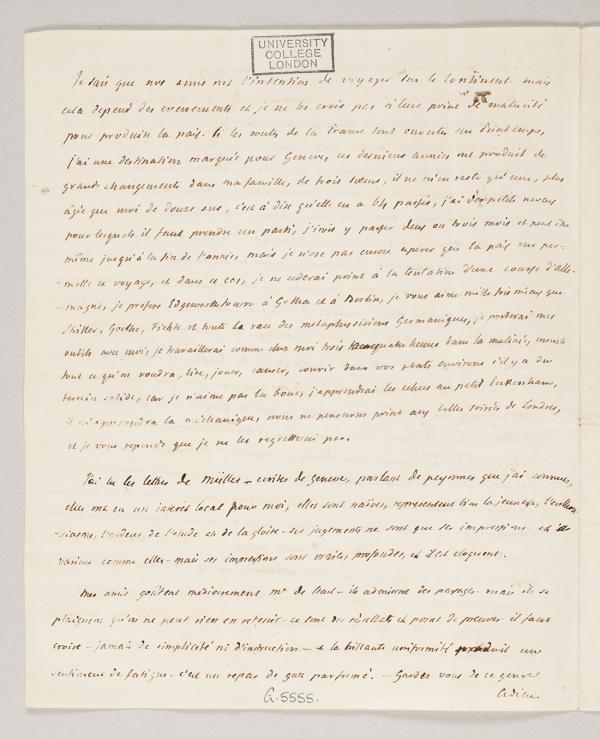 UNIVERSITY
COLLEGE
LONDON
Je sais que nos amis ont l'intention de voyager sur le continent mais
cela depend des evenements et je ne les crois pas à leur point de maturité
pour produire la paix. Si les routes de la France sont ouvertes au Printemps,
j'ai une destination marquée pour Geneve, ces dernieres années ont produit de
grands changements dans ma famille, de trois sœurs, il ne m'en reste qu'une, plus
âgée que moi de douze ans, c'est à dire qu'elle en a 64 passés, j'ai des petits neveux
pour lesquels il faut prendre un parti, j'irois y passer deux ou trois mois et peut être
même jusqu'à la fin de l'année, mais je n'ose pas encore esperer que la paix me per-
-mette ce voyage, et dans ce cas, je ne cederai point à la tentation d'une course d'alle-
magne, je prefere Edgeworthstown à Gotha et à Berlin, je vous aime mille fois mieux que
Skiller, Goethe, Fichte et toute la race des metaphysiciens Germaniques, je porterai mes
outils avec moi, je travaillerai comme chez moi trois quatre heures dans la matinée, ensuite
tout ce qu'on voudra, lire, jouer, causer, courir dans vos plats environs s'il y a du
terrein solide, car je n'aime pas la boue, j'apprendrai les echecs au petit
il m'apprendra la mechanique, nous ne penserons point aux belles soirées de Londres,
et je vous reponds que je ne les regretterai pas.
J'ai lu les lettres de Muller - ecrites de geneve, parlant de personnes que j'ai connues,
elles ont eu un interet local pour moi, elles sont naïves, representent bien la jeunesse, l'enthou
-siasme, l'ardeur de l'etude et de la gloire - ses jugements ne sont que ses impressions et ils
varient comme elles - mais ses impressions sont vraies, profondes, et il est eloquent.
Mes amis goûtent mediocrement Me de Stael - ils admirent des passages mais ils se
plaignent qu'on ne peut rien en retenir - ce sont des resultats et point de preuves - il faut
croire - jamais de simplicité ni d'instruction - et la brillante uniformité produit un
sentiment de fatigue. c'est un repas de gaz parfumé. - Gardez vous de ce genre
Adieu.
G.5555.